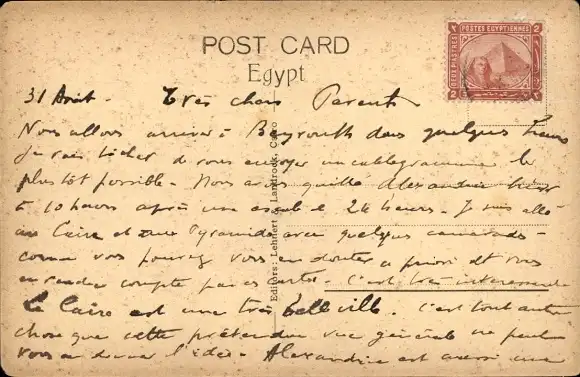 POST CARD
Egypt
POSTES EGYPTIENNES
DEUX PIASTRES
2 2
Editors: Lehnert & Landrock, Cairo
31 Août - Très chers Parents
Nous allons arriver à Beyrouth dans quelques heures
Je vais tâcher de vous envoyer un cablegramme le
plus tôt possible - Nous avons quitté Alexandrie hier
à 10 heures après une escale de 24 heures - Je suis allé
au Caire et aux Pyramides avec quelques camarades -
comme vous pouvez vous en douter a priori et vous
en rendre compte par ces cartes - c'est très intéressant
Le Caire est une très belle ville. C'est tout autre
chose que cette prétendue vue générale ne peut
vous en donner l'idée - Alexandrie est aussi une